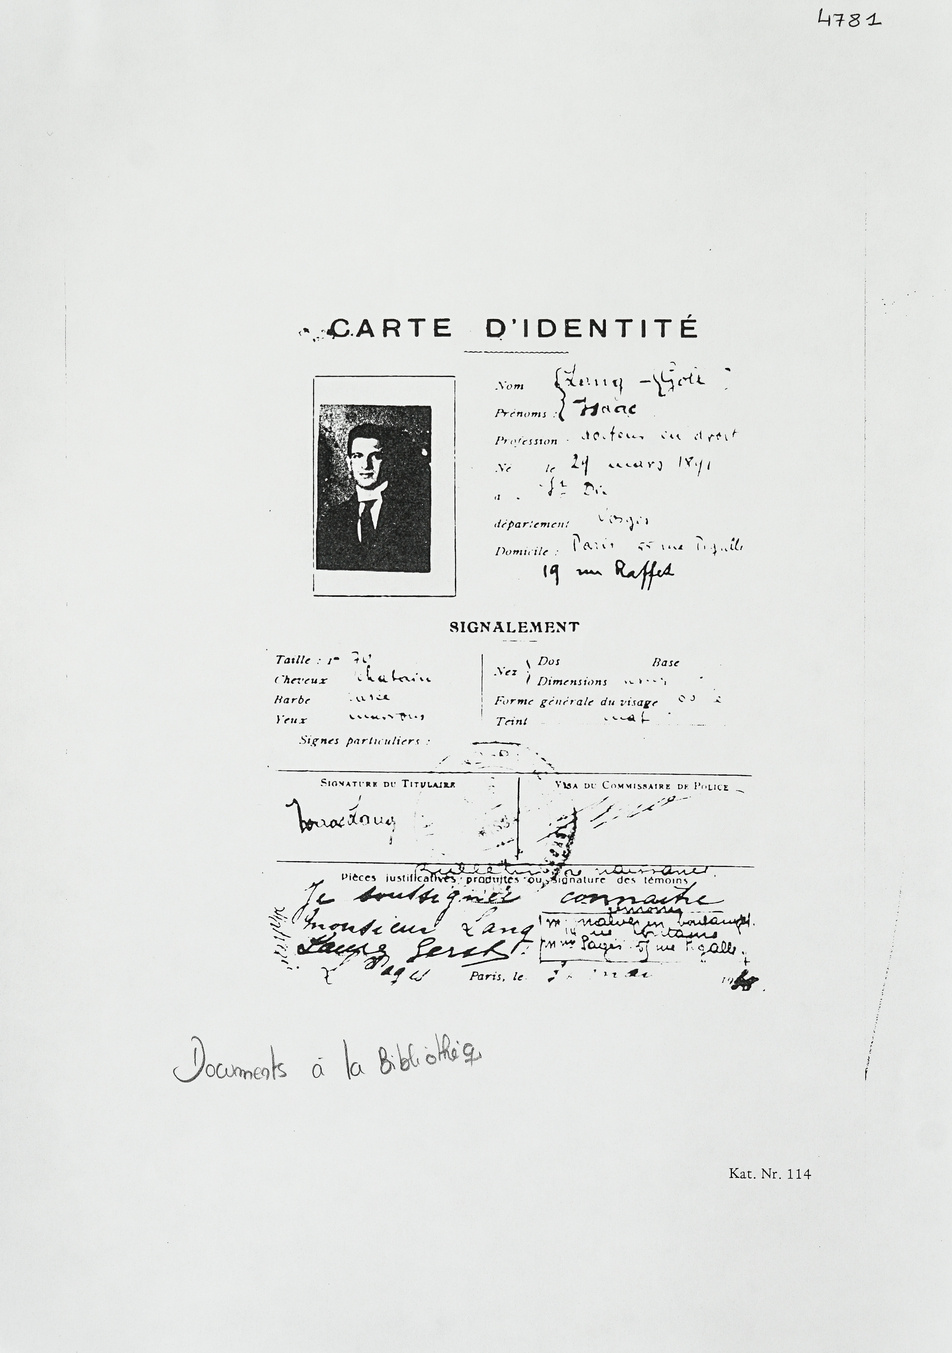 4781
CARTE D'IDENTITÉ
Nom
Prénoms : Isaac
Profession : docteur en droit
Né le 29 mars 1891
à St Dié
département Vosges
Domicile : Paris 55 rue Pigalle
19 rue Raffet
SIGNALEMENT
Taille : 1m 70
Cheveux Chatain
Barbe rasée
Yeux marrons
Signes particuliers :
Nez { Dos Base
Dimensions
Forme générale du visage
Teint mat
SIGNATURE DU TITULAIRE
VISA DU COMMISSAIRE DE POLICE
Bulletin de naissance
Pièces justificatives produites ou signature des témoins
Je soussigné connaitre
monsieur Lang
témoins
rue Pigalle
Paris, le
Documents à la Bibliothèq
Kat. Nr. 114